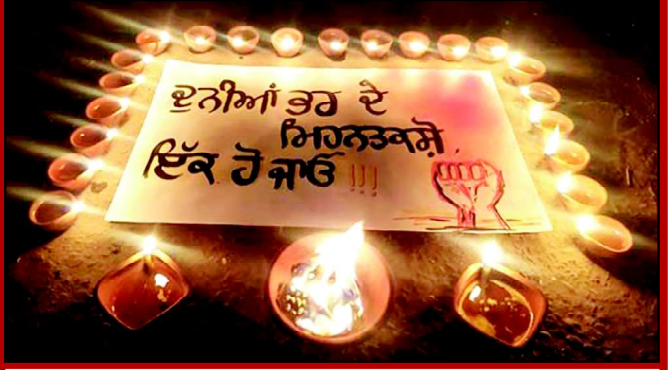 ਦੁਨੀਆਂ ਭਰ ਦੇ
ਮਿਹਨਤਕਸ਼ੋ
ਇੱਕ ਹੋ ਜਾਓ !!!